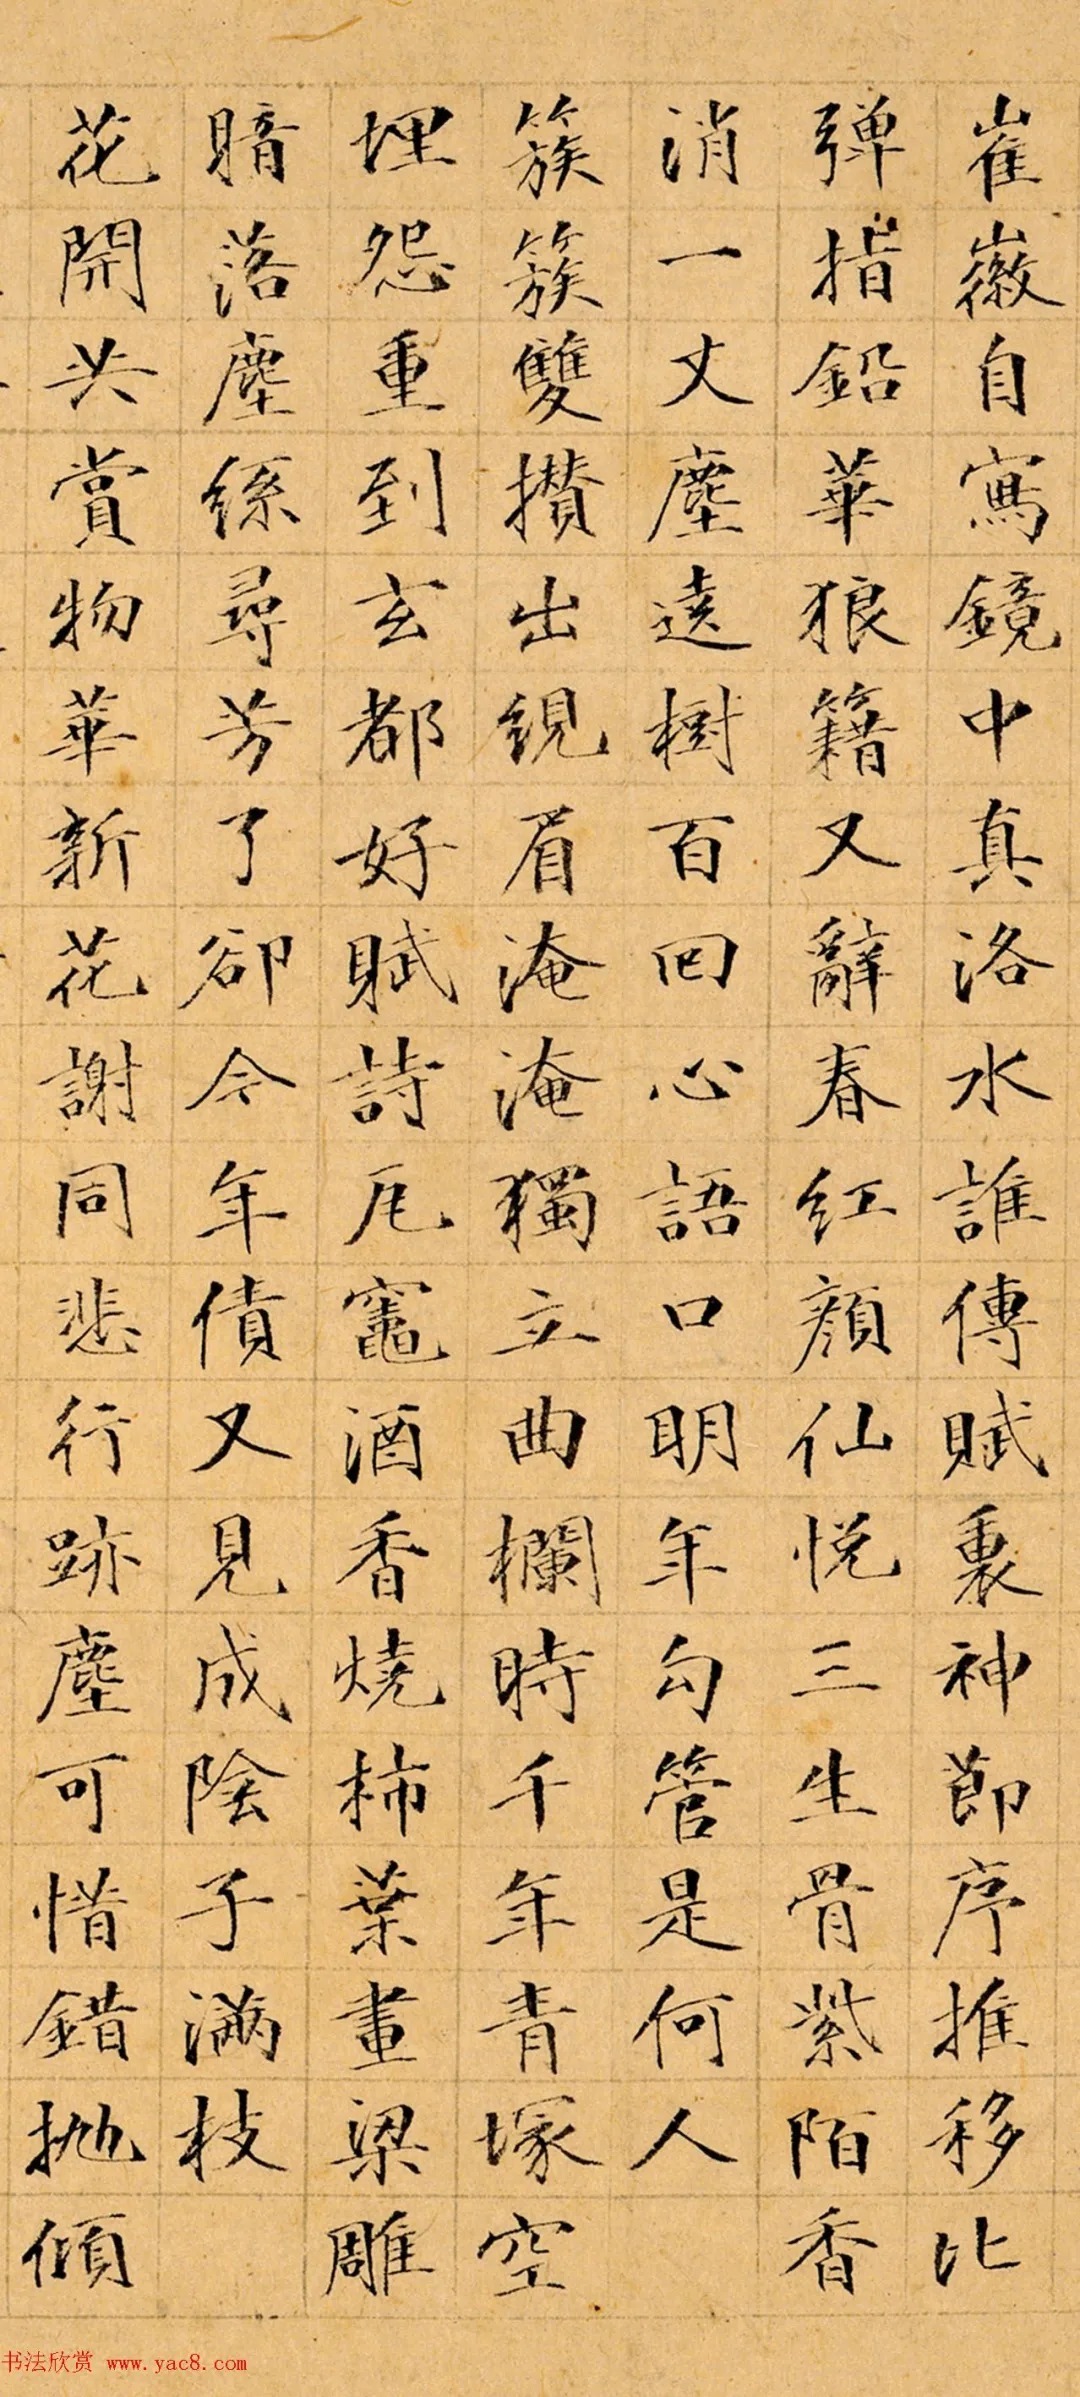 崔徽自寫鏡中真洛水誰傳賦裏神節序推移比
弹指鉛華狼籍又辭春红顏仙悅三生骨紫陌香
消一丈塵遠樹百回心語口明年勾管是何人
簇簇雙攅出覝眉淹淹獨立曲欄時千年青塚空
埋怨重到玄都好賦詩厄竈酒香燒柿葉畫梁雕
暗落塵絲尋芳了卻今年債又見成陰子滿枝
花開共賞物華新花謝同悲行跡塵可惜錯抛傾
书法欣赏 www.yac8.com